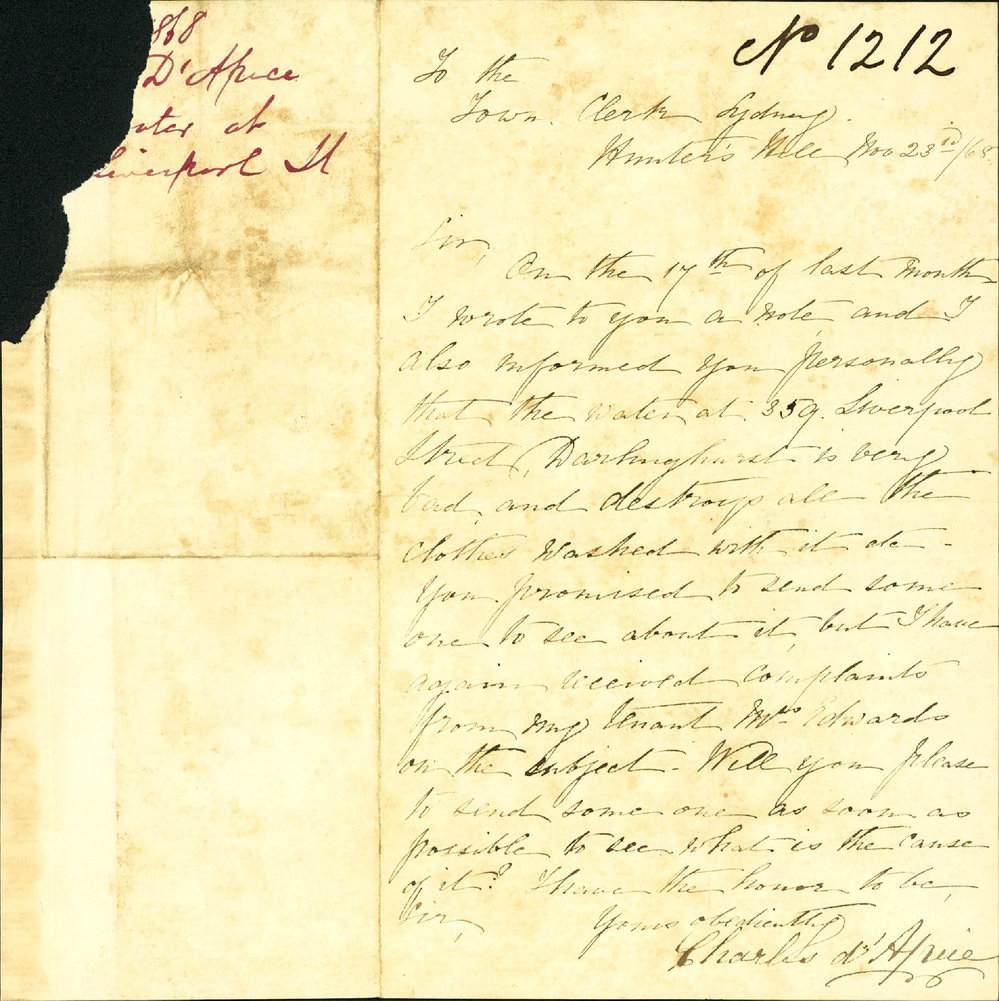 1868
D'Apice
ater at
Liverpool St
No 1212
To the
Town Clerk Sydney.
Hunter's Hill Nov 23rd/68.
Sir,
On the 17th of last month
I wrote to you a note, and I
also informed you personally
that the water at 359. Liverpool
Street, Darlinghurst is very
bad, and destroys all the
clothes washed with it &c -
You promised to send some
one to see about it, but I have
again received complaints
from my tenant Mrs Edwards
on the subject - Will you please
to send some one as soon as
possible to see what is the cause
of it? I have the honor to be,
Sir,
Yours obediently
Charles d'Apice